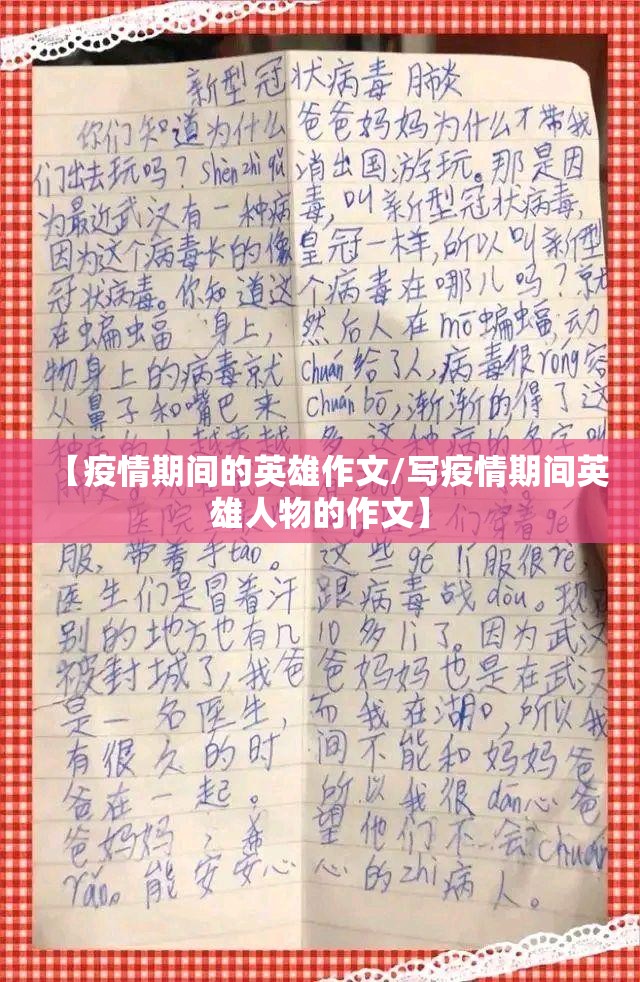 新型冠状病毒肺炎
你们知道为什么爸爸妈妈为什么才带我
们出去玩吗？shèn zhì qǔ消出国游玩。那是因
为最近武汉有一种病毒，叫新型冠状病毒，
因为这个病毒长的像皇冠一样，所以叫新型
冠状病毒。你知道这个病毒在哪儿吗？就
在蝙蝠身上，然后人在mō蝙蝠，动
物身上的病毒就chuán给了人，病毒很róng容
从鼻子和嘴巴来chuán bō，渐渐的得了这
多 这种病的名字叫
【疫情期间的英雄作文/写疫情期间英
雄人物的作文】
医院 们穿着gé
服，带着手tào。这些gé lí服很rè，
医生们是冒着汗跟病毒战dòu。现在
别的地方也有几10多li了。因为武汉
被封城了，我爸爸妈妈也是在武汉
是一名医生，而我在湖口，所以我
有很久的时间不能和妈妈爸
爸在一起。所以我很dān心爸
爸妈妈，希望他们不会chuán
rǎn。能安安心心的zhì病人。